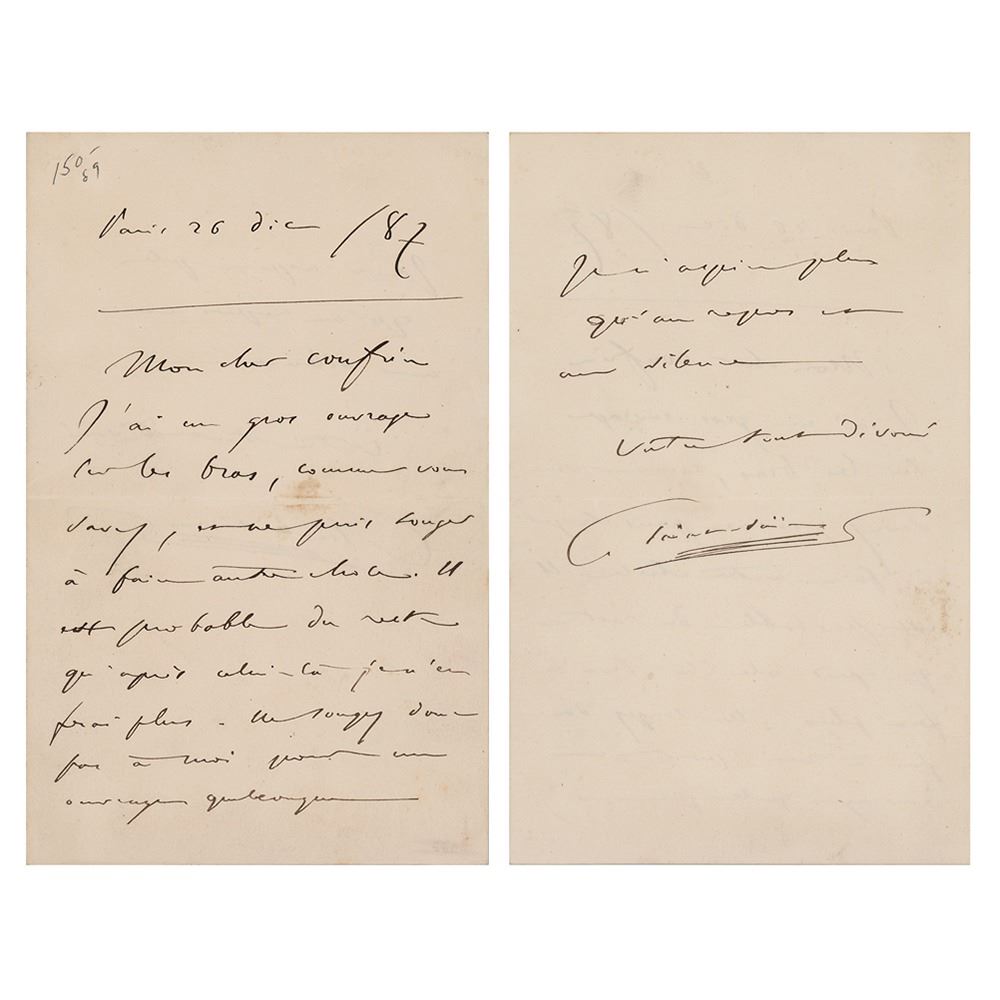 150/89
Paris 26 déc /87
Mon cher confrère
J'ai un gros ouvrage
sur les bras, comme vous
savez, et ne puis songer
à faire autre chose. Il
est probable du reste
qu'après celui-là je n'en
ferai plus. Ne songez donc
pas à moi pour un
ouvrage quelconque
Je n'aspire plus
qu'au repos et
au silence
Votre tout dévoué
C. Saint-Saëns